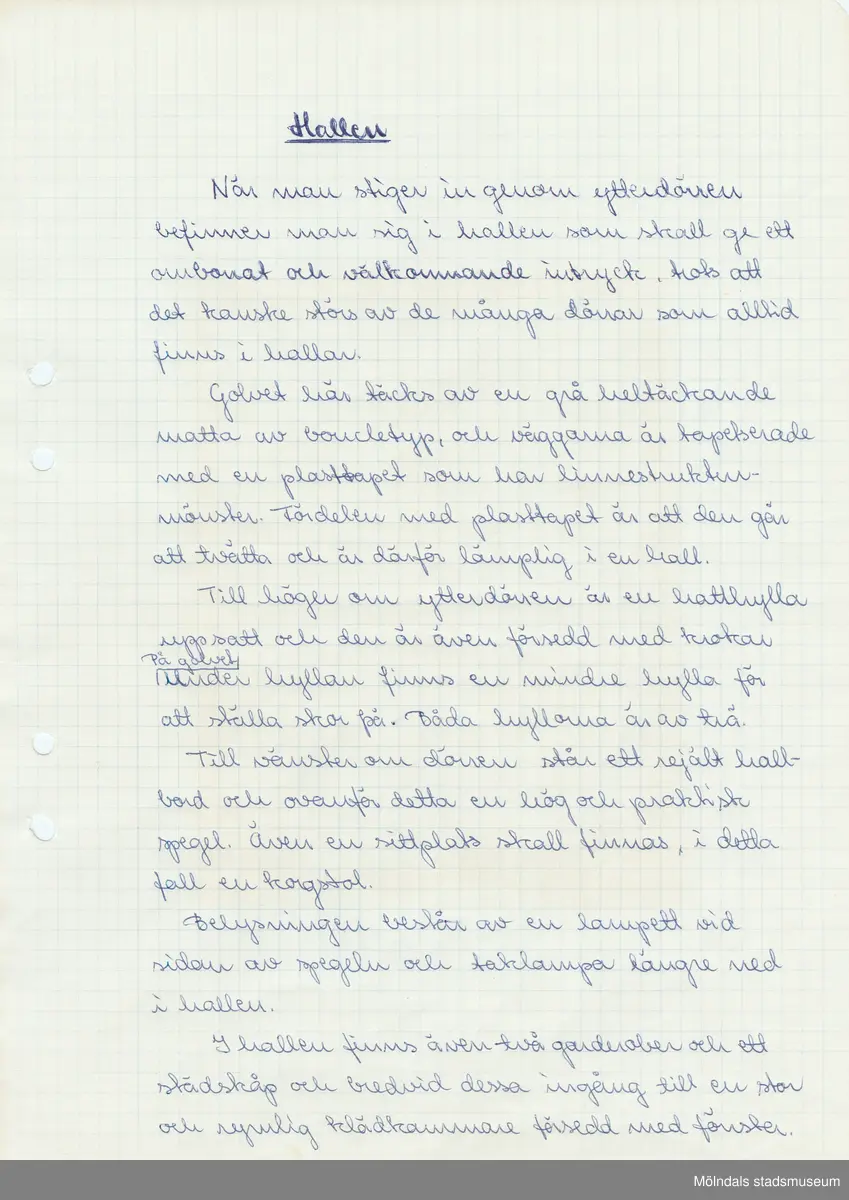 Hallen
När man stiger in genom ytterdörren
befinner man sig i hallen som skall ge ett
ombonat och välkommande intryck, trots att
det kanske störs av de många dörrar som alltid
finns i hallar.
Golvet här täcks av en grå heltäckande
matta av boucletyp, och väggarna är tapetserade
med en plasttapet som har linnestruktur-
mönster. Fördelen med plasttapet är att den går
att tvätta och är därför lämplig i en hall.
Till höger om ytterdörren är en hatthylla
uppsatt och den är även försedd med krokar
På golvet
Under hyllan finns en mindre hylla för
att ställa skor på. Båda hyllorna är av trä.
Till vänster om dörren står ett rejält hall-
bord och ovanför detta en hög och praktisk
spegel. Även en sittplats skall finnas, i detta
fall en korgstol.
Belysningen består av en lampett vid
sidan av spegeln och taklampa längre ned
i hallen.
I hallen finns även två garderober och ett
städskåp och bredvid dessa ingång till en stor
och rymlig klädkammare försedd med fönster.
Mölndals stadsmuseum